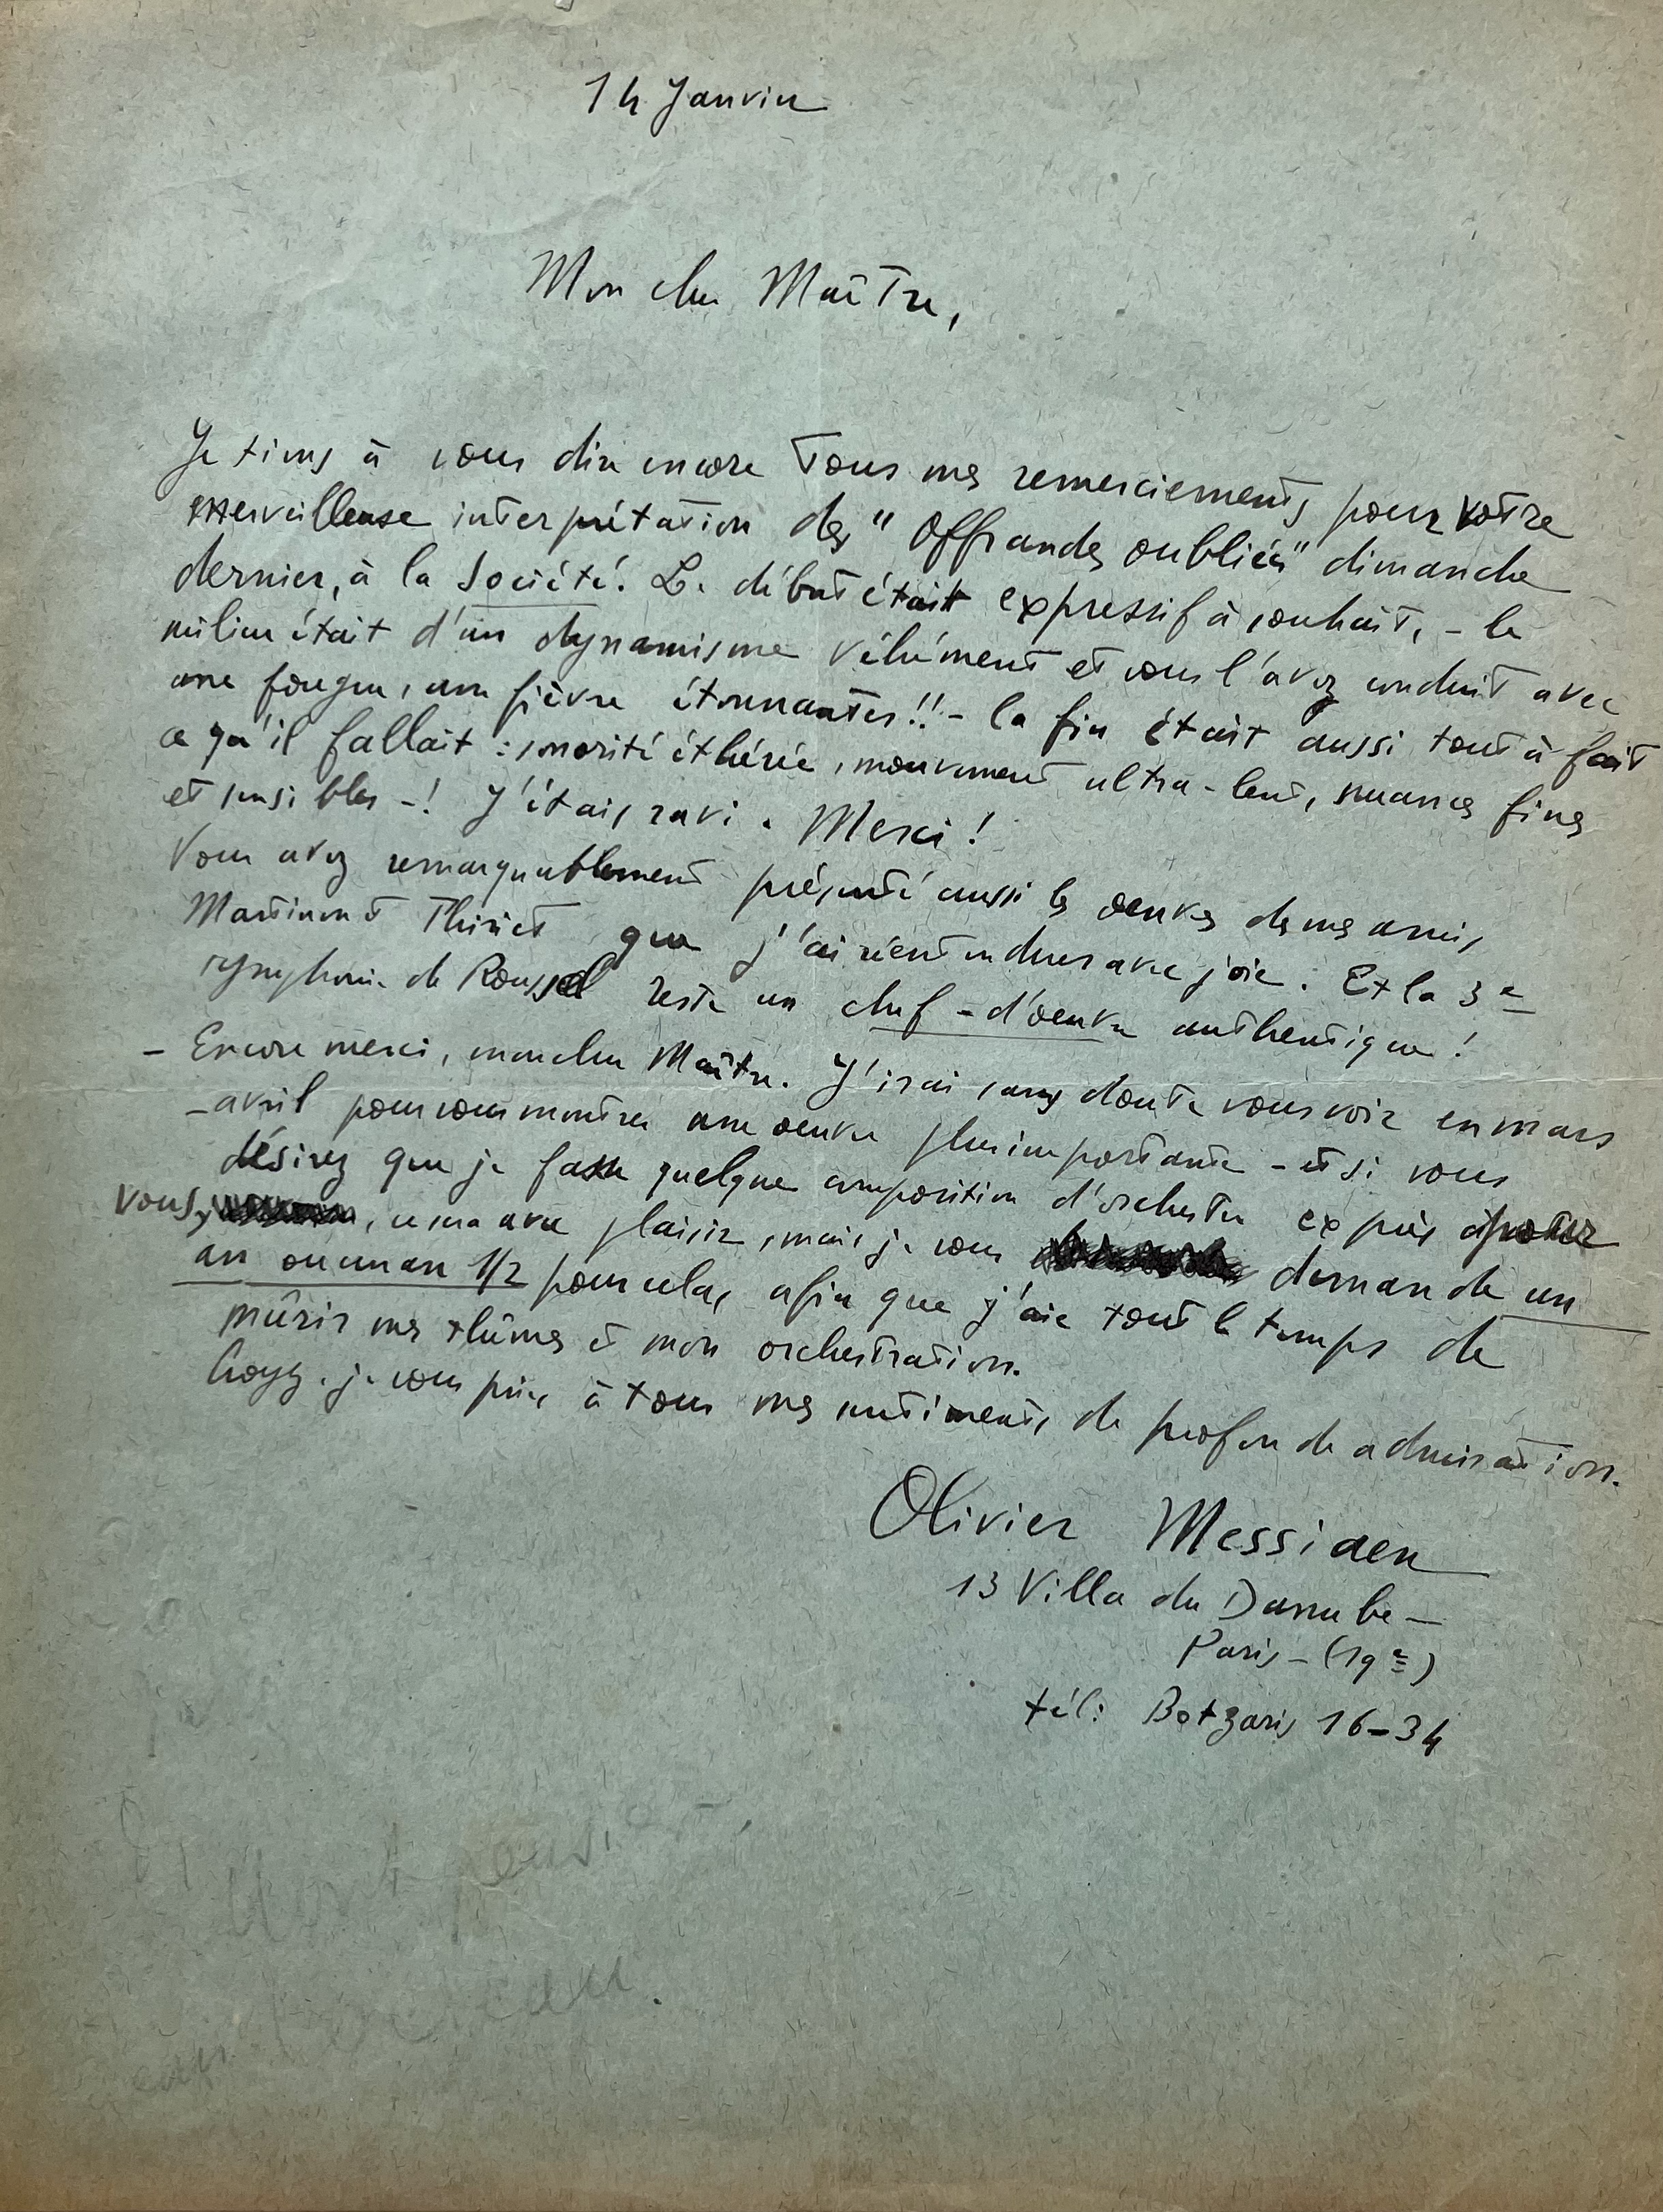 14 Janvier
Mon cher Maître,
Je tiens à vous dire encore tous mes remerciements pour votre
merveilleuse interprétation des "Offrandes oubliées" dimanche
dernier, à la Société. Le début était expressif à souhait, - le
milieu était d'un dynamisme véhément et vous l'avez conduit avec
une fougue, une fièvre étonnantes!! - la fin était aussi tout à fait
ce qu'il fallait : sonorité éthérée, mouvement ultra-lent, nuances fines
et sensibles -! J'étais ravi. Merci!
Vous avez remarquablement présenté aussi les oeuvres de mes amis,
Martinon et Thiriet que j'ai réentendues avec joie. Et la 3e
symphonie de Roussel reste un chef-d'oeuvre authentique!
- Encore merci, mon cher Maître. J'irai sans doute vous voir en mars
-avril pour vous montrer une oeuvre plus importante - et si vous
désirez que je fasse quelque composition d'orchestre exprès pour
vous, ce sera avec plaisir, mais je vous demande un
an ou un an 1/2 pour cela, afin que j'aie tout le temps de
mûrir mes thèmes et mon orchestration.
Croyez, je vous prie, à tous mes sentiments de profonde admiration.
Olivier Messiaen
13 Villa du Danube -
Paris - (19e)
tél: Botzaris 16-34